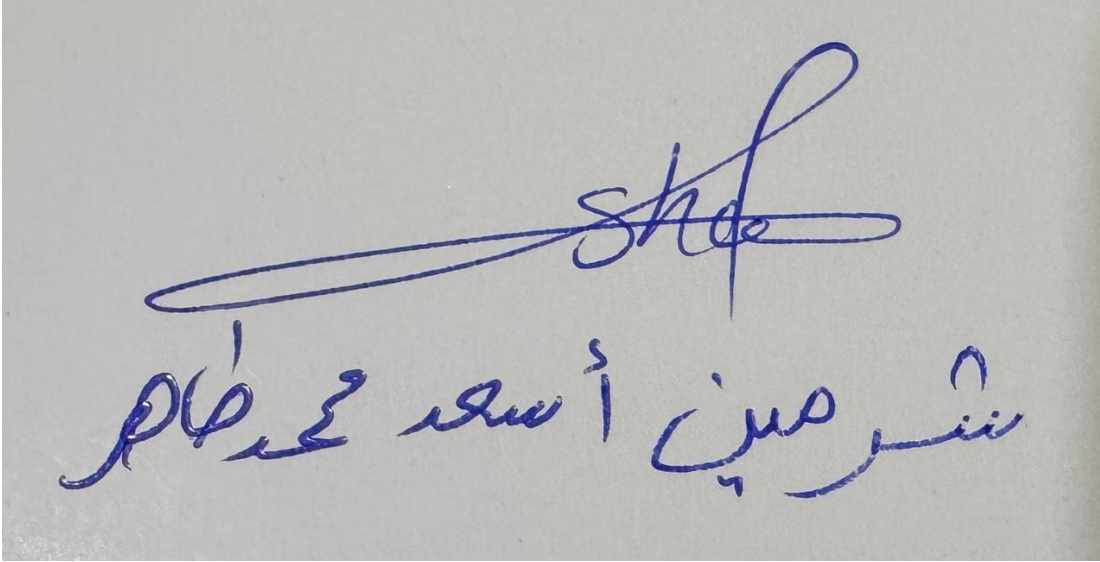 she
شرمين أسعد محمد طاهر